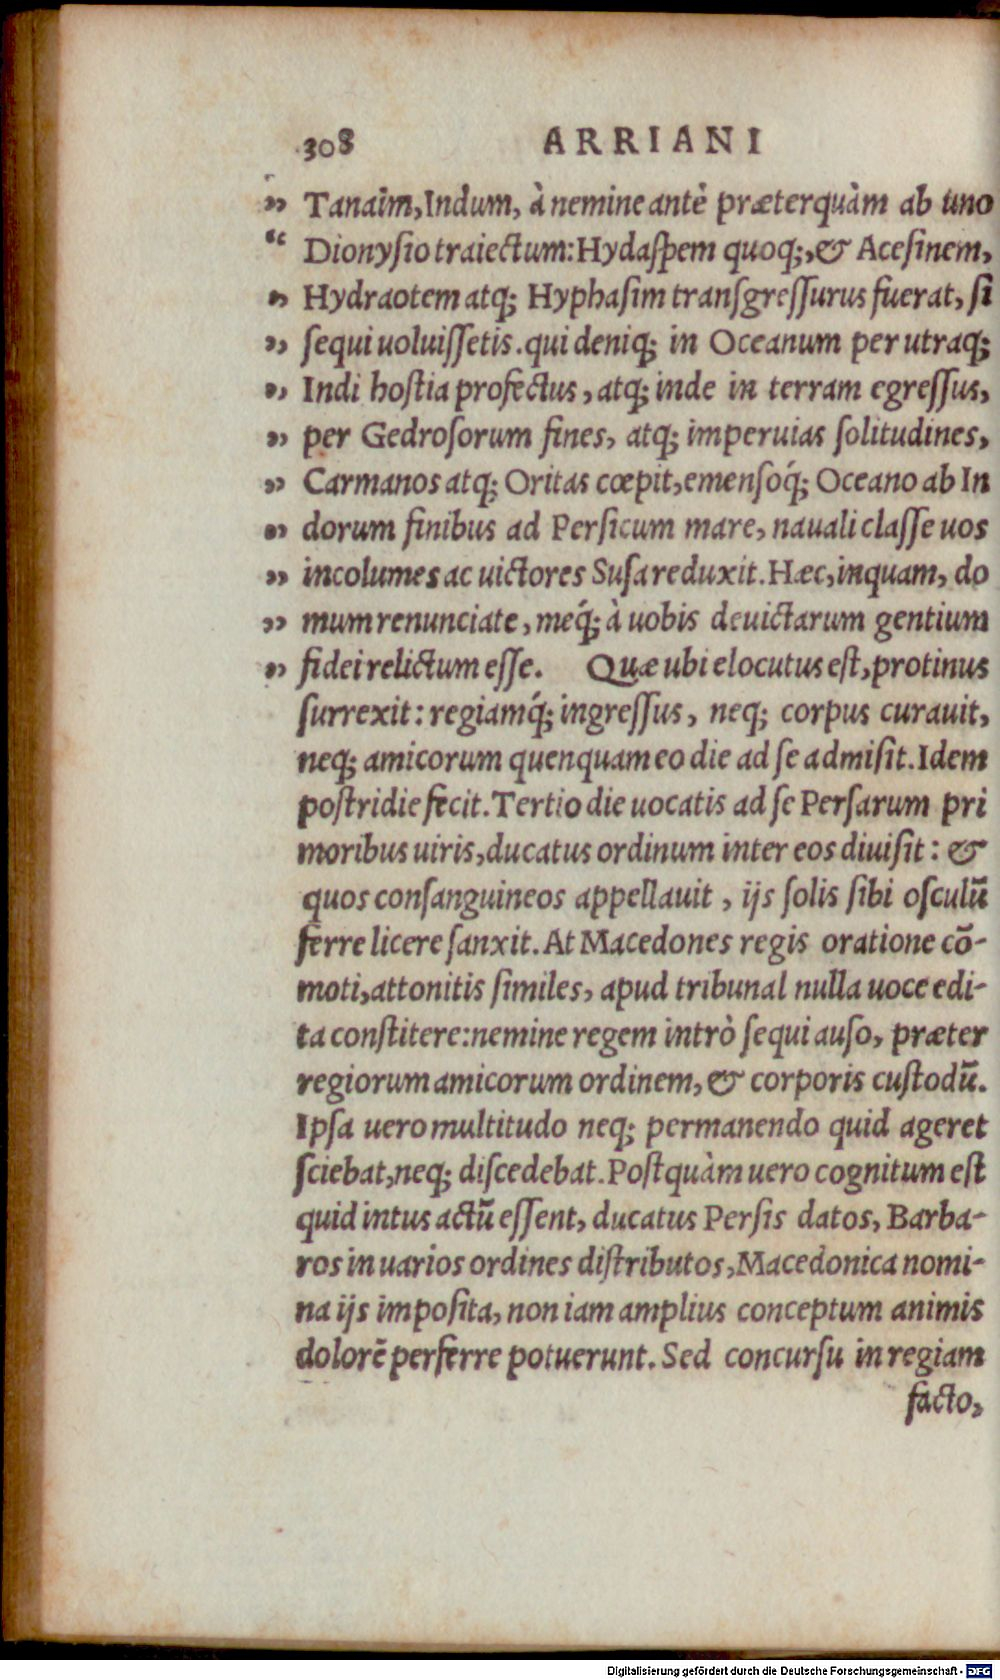 308 ARRIANI
„ Tanaim, Indum, à nemine antè præterquàm ab uno
“ Dionysio traiectum: Hydaspem quoq;, & Acesinem,
„ Hydraotem atq; Hyphasim transgressurus fuerat, si
„ sequi uoluissetis. qui deniq; in Oceanum per utraq;
„ Indi hostia profectus, atq; inde in terram egressus,
„ per Gedrosorum fines, atq; imperuias solitudines,
„ Carmanos atq; Oritas cœpit, emensoq́; Oceano ab In
„ dorum finibus ad Persicum mare, nauali classe uos
„ incolumes ac uictores Susa reduxit. Hæc, inquam, do
„ mum renunciate, meq́; à uobis deuictarum gentium
„ fidei relictum esse. Quæ ubi elocutus est, protinus
surrexit: regiamq́; ingressus, neq; corpus curauit,
neq; amicorum quenquam eo die ad se admisit. Idem
postridie fecit. Tertio die uocatis ad se Persarum pri
moribus uiris, ducatus ordinum inter eos diuisit: &
quos consanguineos appellauit, ijs solis sibi osculū
ferre licere sanxit. At Macedones regis oratione cō-
moti, attonitis similes, apud tribunal nulla uoce edi-
ta constitere: nemine regem intrò sequi auso, præter
regiorum amicorum ordinem, & corporis custodū.
Ipsa uero multitudo neq; permanendo quid ageret
sciebat, neq; discedebat. Postquàm uero cognitum est
quid intus actū essent, ducatus Persis datos, Barba-
ros in uarios ordines distributos, Macedonica nomi-
na ijs imposita, non iam amplius conceptum animis
dolorē perferre potuerunt. Sed concursu in regiam
facto,
Digitalisierung gefördert durch die Deutsche Forschungsgemeinschaft - DFG